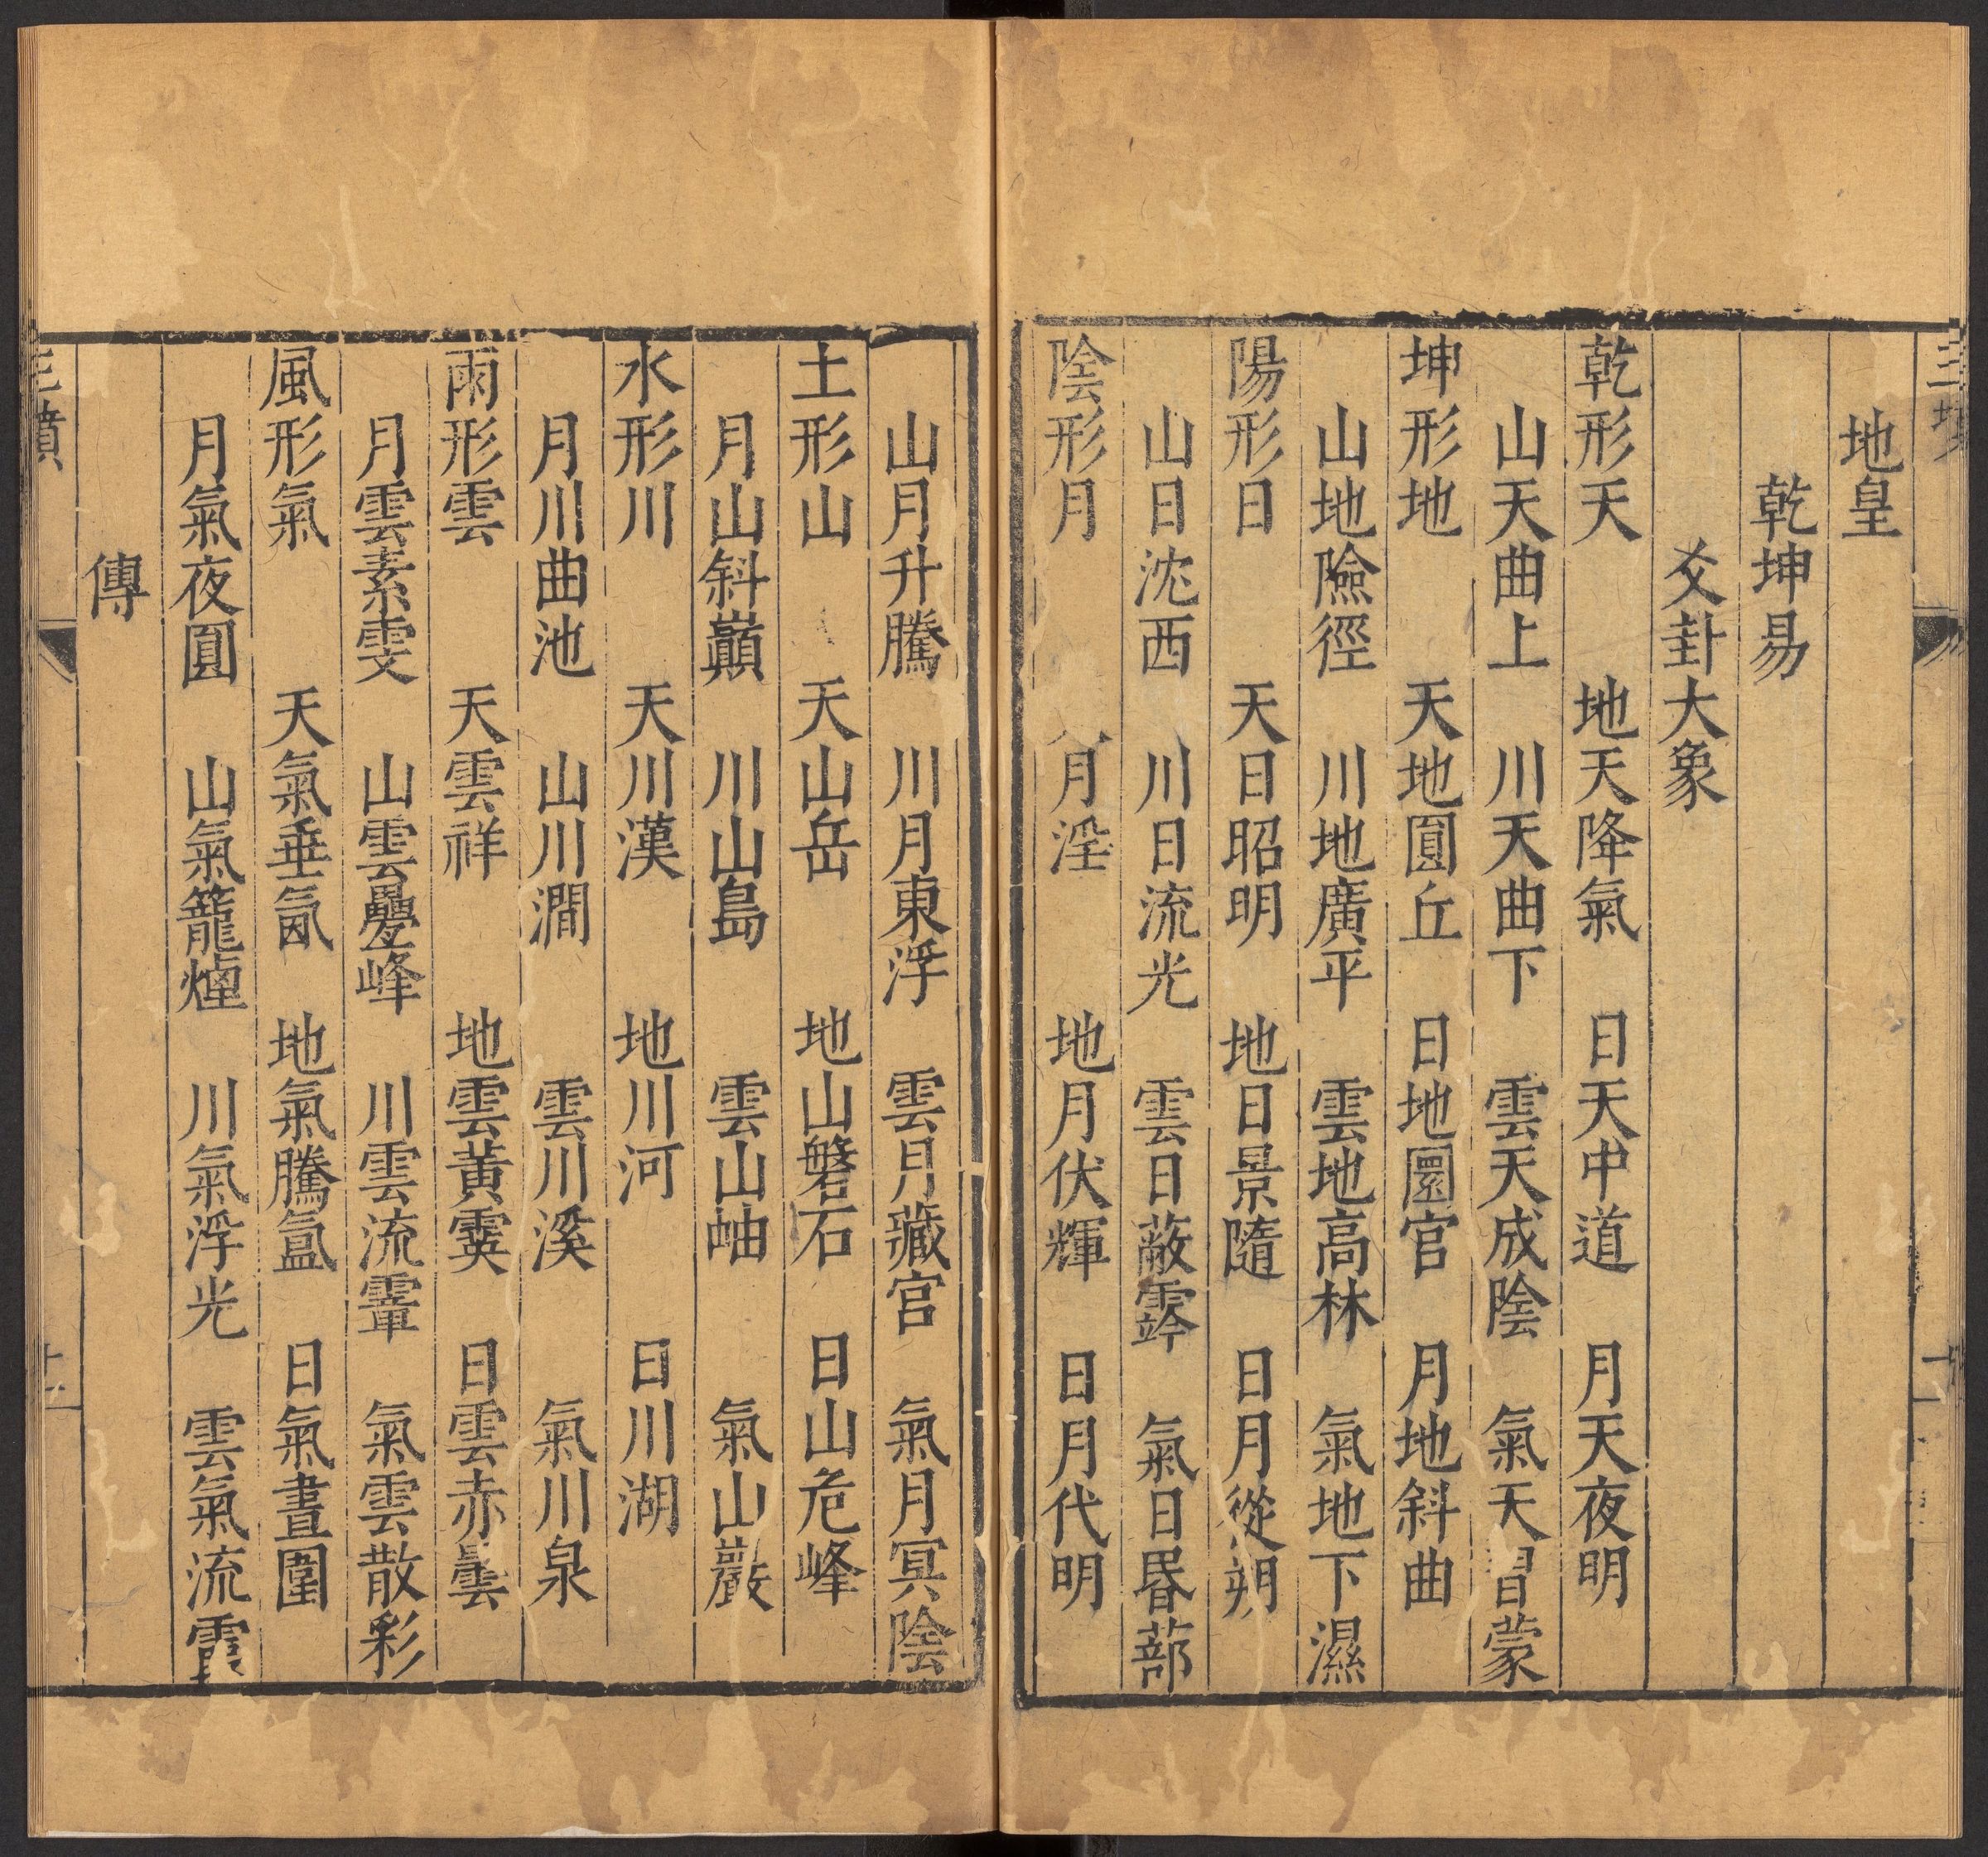 地皇
乾坤易
爻卦大象
乾形天 地天降氣 日天中道 月天夜明
山天曲上 川天曲下 雲天成陰 氣天習蒙
坤形地 天地圓丘 日地圜宮 月地斜曲
山地險徑 川地廣平 雲地高林 氣地下濕
陽形日 天日昭明 地日景隨 日月從朔
山日沈西 川日流光 雲日蔽霠 氣日昬蔀
陰形月 月淫 地月伏輝 日月代明
山月升騰 川月東浮 雲月藏宮 氣月冥陰
土形山 天山岳 地山磐石 日山危峰
月山斜巔 川山島 雲山岫 氣山巖
水形川 天川漢 地川河 日川湖
月川曲池 山川澗 雲川溪 氣川泉
雨形雲 天雲祥 地雲黃霙 日雲赤曇
月雲素雯 山雲疊峰 川雲流䨵 氣雲散彩
風形氣 天氣垂氤 地氣騰氳 日氣晝圍
月氣夜圓 山氣籠煙 川氣浮光 雲氣流霞
傳
三墳